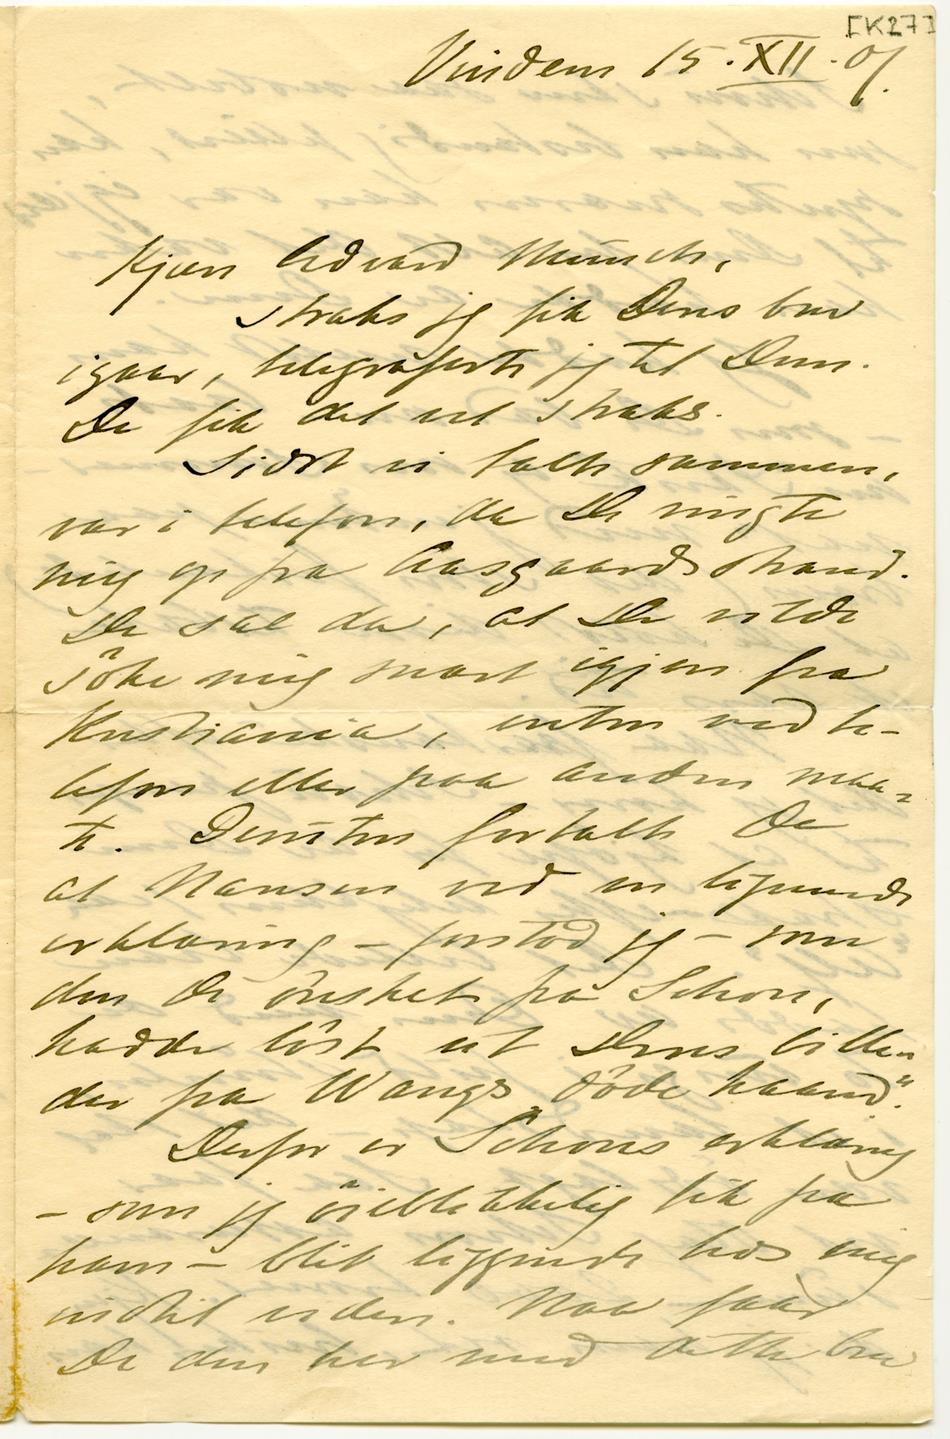 [K27]
Vinderen 15.XII.07.
Kjære Edvard Munch,
straks jeg fik Deres brev
igaar, telegraferte jeg til Dem.
De fik det vel straks.
Sidst vi talte sammen,
var i telefon, da De ringte
mig op fra Aasgaardsstrand.
De sa da, at De vilde
søke mig snart igjen fra
Kristiania, enten ved te-
lefon eller paa anden maa-
te. Desuten fortalte De
at Nansen ved en lignende
erklæring – forstod jeg – som
den De ønsket fra Schou,
hadde løst ut Deres bille-
der fra Wangs "døde haand".
Derfor er Schous erklæring
– som jeg øieblikkelig fik fra
ham – blit liggende hos mig
indtil videre. Naa faar
De den her med dette brev